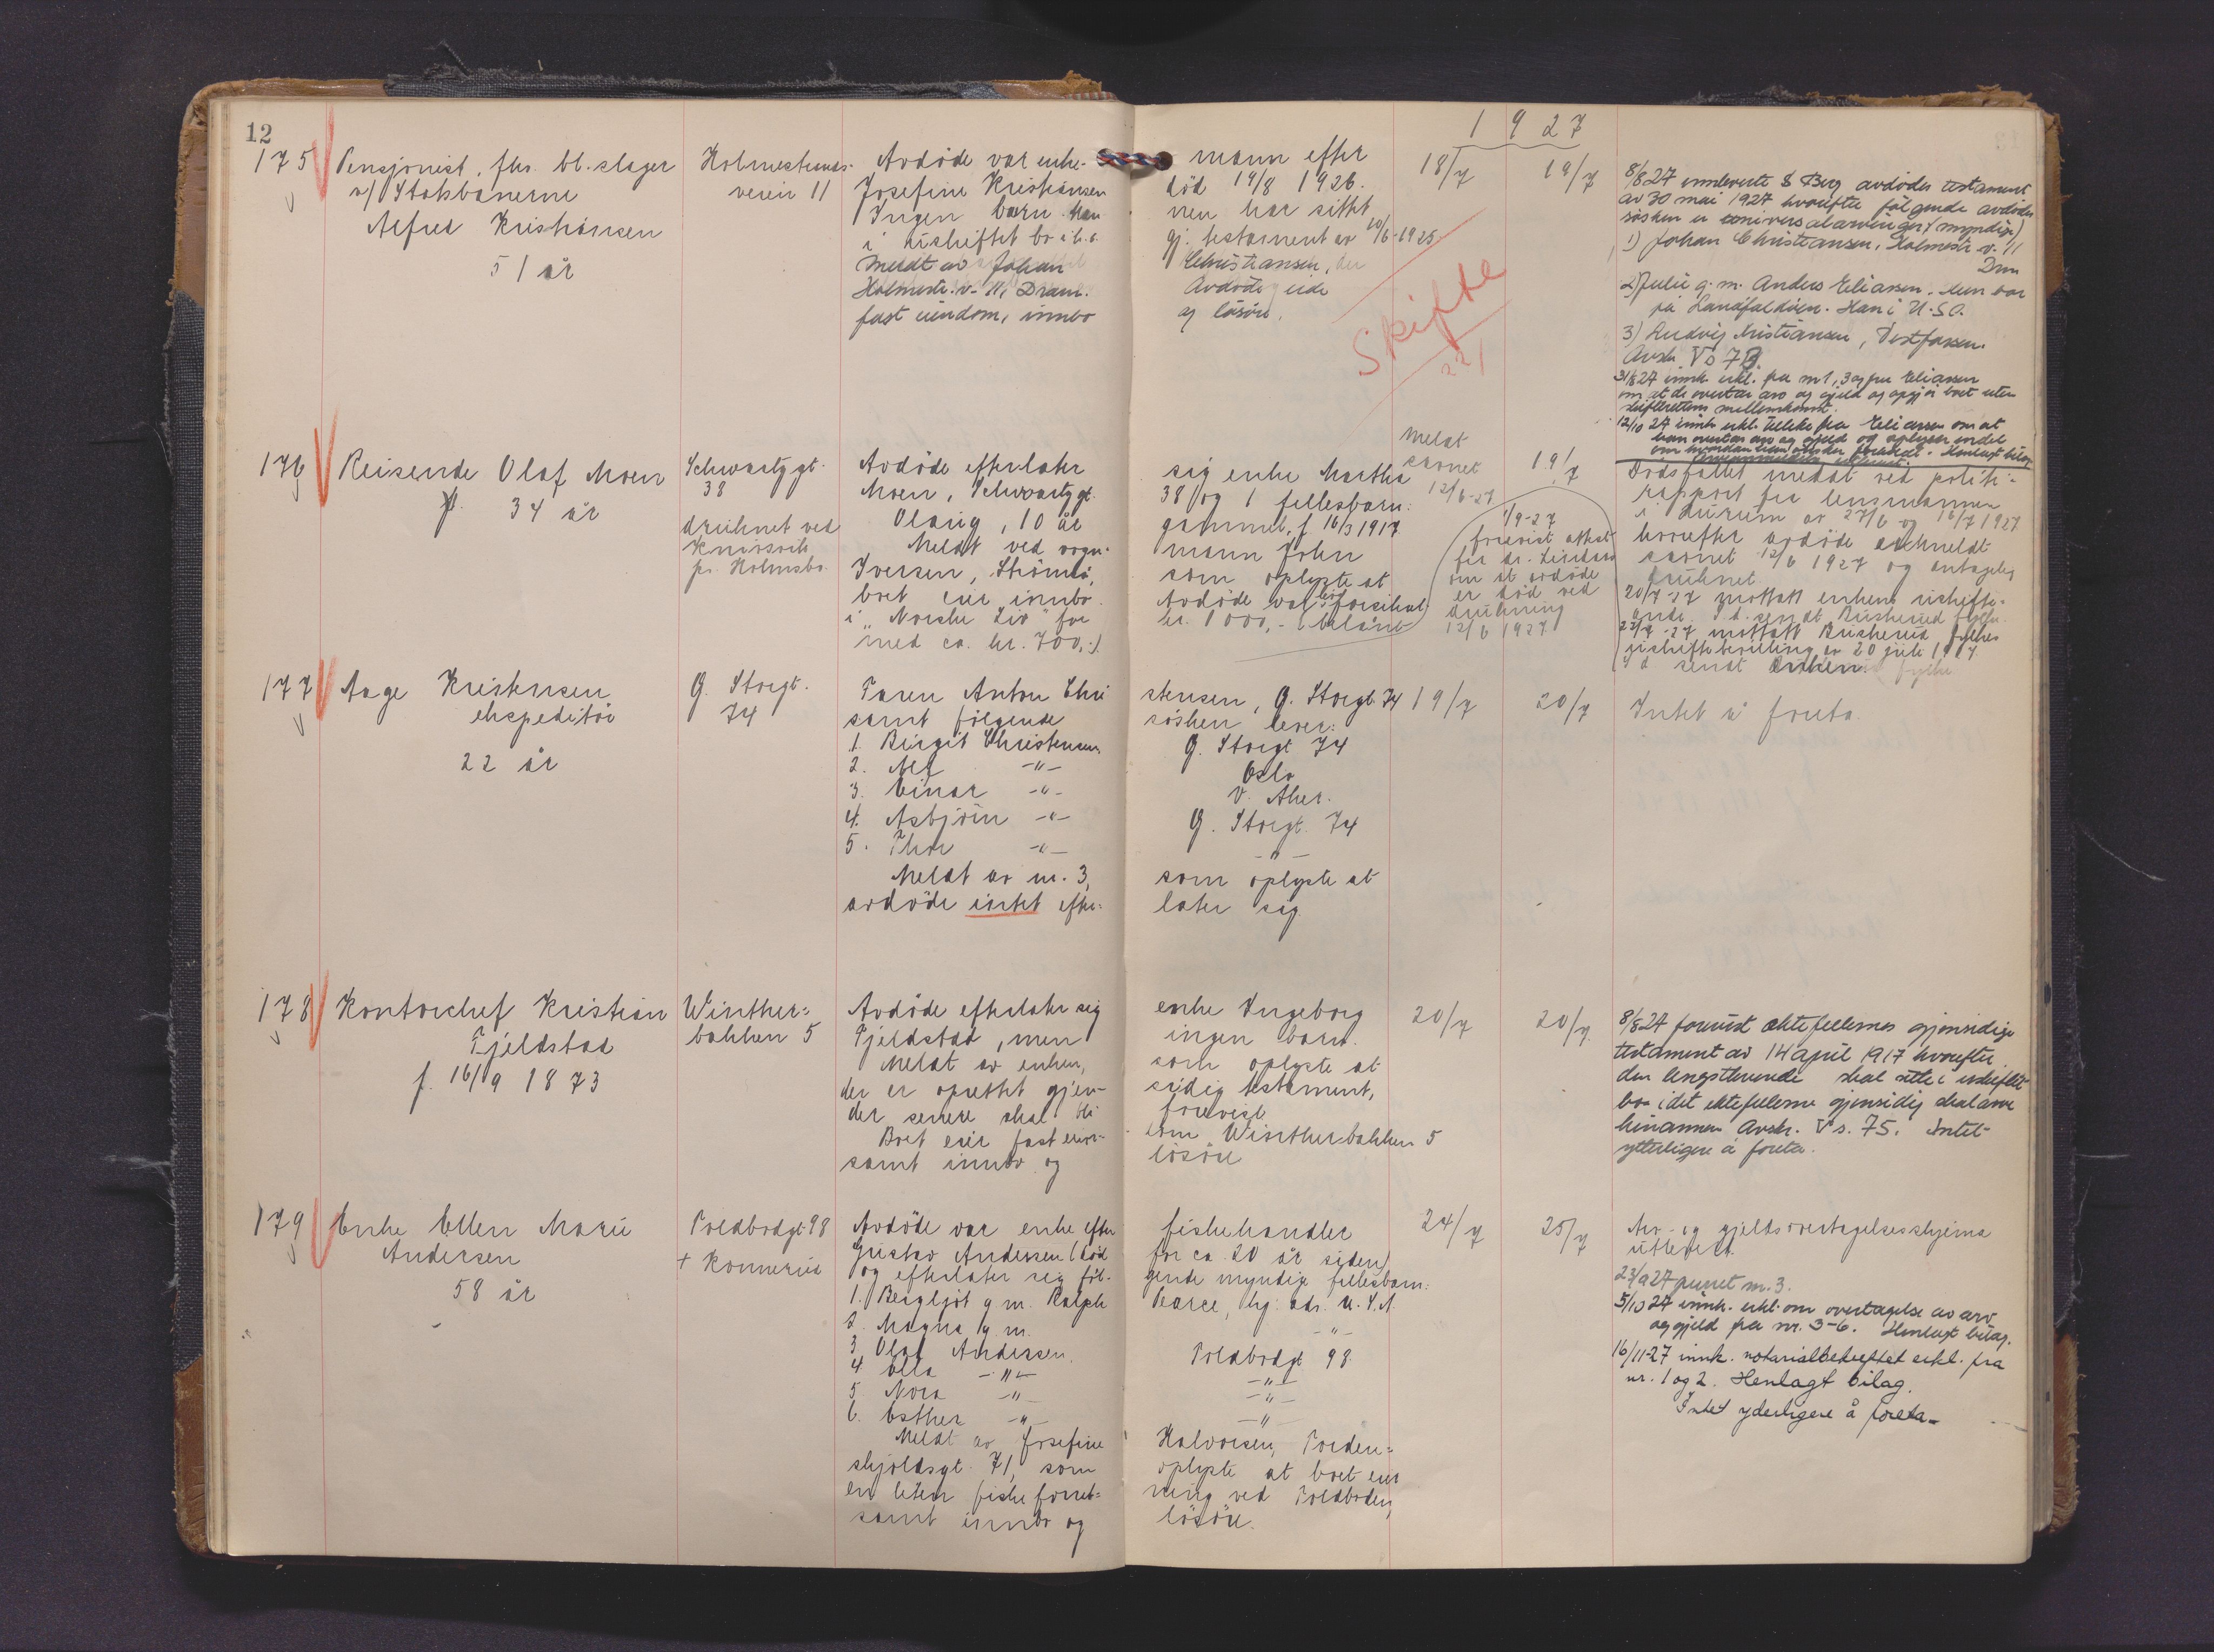 12
1927
175
Pensjonist, fhv. bl.slager
v/ Statsbanerne
Alfred Kristiansen
51 år
Holmestrands-
veien 11
Avdøde var enke-
mann efter
Josefine Kristiansen
død 14/8 1926.
Ingen barn. Man-
nen har sittet
i uskiftet bo i h.t.
gj. testament av 10/6-1925.
Meldt av Johan
Christiansen,
Holmestr.v. 11, Dram.
Avdøde eide
fast eiendom, innbo
og løsøre.
18/7
19/7
Skifte
221
8/8 27 innleverte S Berg avdødes testament
av 30 mai 1927 hvorefter følgende avdødes
søsken er universalarvinger (myndige)
1) Johan Christiansen, Holmestr.v. 11
Drm
2) Julie g.m. Anders Eliassen. Hun bor
på Landfaldøen. Han i U.S.A.
3) Ludvig Kristiansen, Vestfossen.
Avskr. V s 73.
31/8 27 innk. erkl. fra nr 1, 3 og fru Eliassen
om at de overtar arv og gjeld og opgjør boet uten
skifterettens mellemkomst.
12/10 27 innk. erkl. fra Eliassen om at
han overtar arv og gjeld og
Henlagt bilag
176
Reisende Olaf Moen
34 år
Schwartzgt.
38
druknet ved
Knivsvik
pr. Holmsbo.
Avdøde efterlater
sig enke Martha
Moen, Schwartzgt.
38 og 1 fellesbarn:
Olaug, 10 år
gammel, f 16/3 1917
Meldt ved vogn-
mann John
Iversen, Strømsø,
som oplyste at
boet eier innbo.
Avdøde var livsforsikret
i "Norske Liv" for
kr. 1000,- (belånt
med ca. kr. 700,-).
Meldt
savnet
12/6-27
19/7
1/9-27
forevist attest
fra dr.
om at avdøde
er død ved
drukning
12/6 1927.
Dødsfallet meldt ved politi-
rapport fra lensmannen
i Hurum av 27/6 og 16/7 1927
hvorefter avdøde anmeldt
savnet 12/6 1927 og antagelig
druknet.
20/7-27 mottatt enkens uskifte-
22/7-27 mottatt Buskerud fylkes
uskiftebevilling av 20 juli 1927.
S d sendt enken.
177
Aage Kristensen
ekspeditør
22 år
G. Storgt.
74
Faren Anton Chri
stensen, G. Storgt. 74
samt følgende
søsken lever:
1. Birgit Christensen
G. Storgt 74
2. Alf -"-
Oslo
3. Einar -"-
V. Aker.
4. Asbjørn -"-
G. Storgt. 74
5. Thor -"-
-"-
Meldt av nr. 3,
som oplyste at
avdøde intet efter-
later sig
19/7
20/7
Intet å foreta.
178
Kontorchef Kristian
Fjeldstad
f. 16/9 1873
Winther-
bakken 5
Avdøde efterlater sig
enke Ingeborg
Fjeldstad, men
ingen barn.
Meldt av enken,
som oplyste at
der er oprettet gjen-
sidig testament,
der senere skal bli
forevist
Boet eier fast eien-
dom Wintherbakken 5
samt innbo og
løsøre
20/7
20/7.
8/8 27 forevist ektefellernes gjensidige
testament av 14 april 1917 hvorefter
den lengstlevende skal sitte i uskiftet
bo idet ektefellerne gjensidig skal arve
hinannen Avskr. V s. 75. Intet
ytterligere å foreta.
179
Enke Ellen Marie
Andersen
58 år
Toldbodgt 98
+ Konnerud
Avdøde var enke efter
fiskehandler
Gustav Andersen (død
for ca. 20 år siden)
og efterlater sig føl-
gende myndige fellesbarn:
1. Bergljot g m. Ralph
Pearce, hj. adr. U.S.A.
2. Magna g.m.
-"-
3. Olaf Andersen.
Toldbodgt 98.
4. Ella -"-
-"-
5. Nora -"-
-"-
6. Esther -"-
-"-
Meldt av Josefine
Halvorsen, Torden-
skjoldsgt. 71, som
oplyste at boet eier
en liten fiskeforret-
ning ved Toldboden,
samt innbo og
løsøre.
24/7
25/7
Arv- og gjeldsovertagelsesskjema
utlevert.
23/9 27 purret nr. 3.
5/10 27 innk. erkl. om overtagelse av arv
og gjeld fra nr. 3-6. Henlagt bilag.
16/11-27 innk. notarialbekreftet erkl. fra
nr. 1 og 2. Henlagt bilag.
Intet yderligere å foreta.